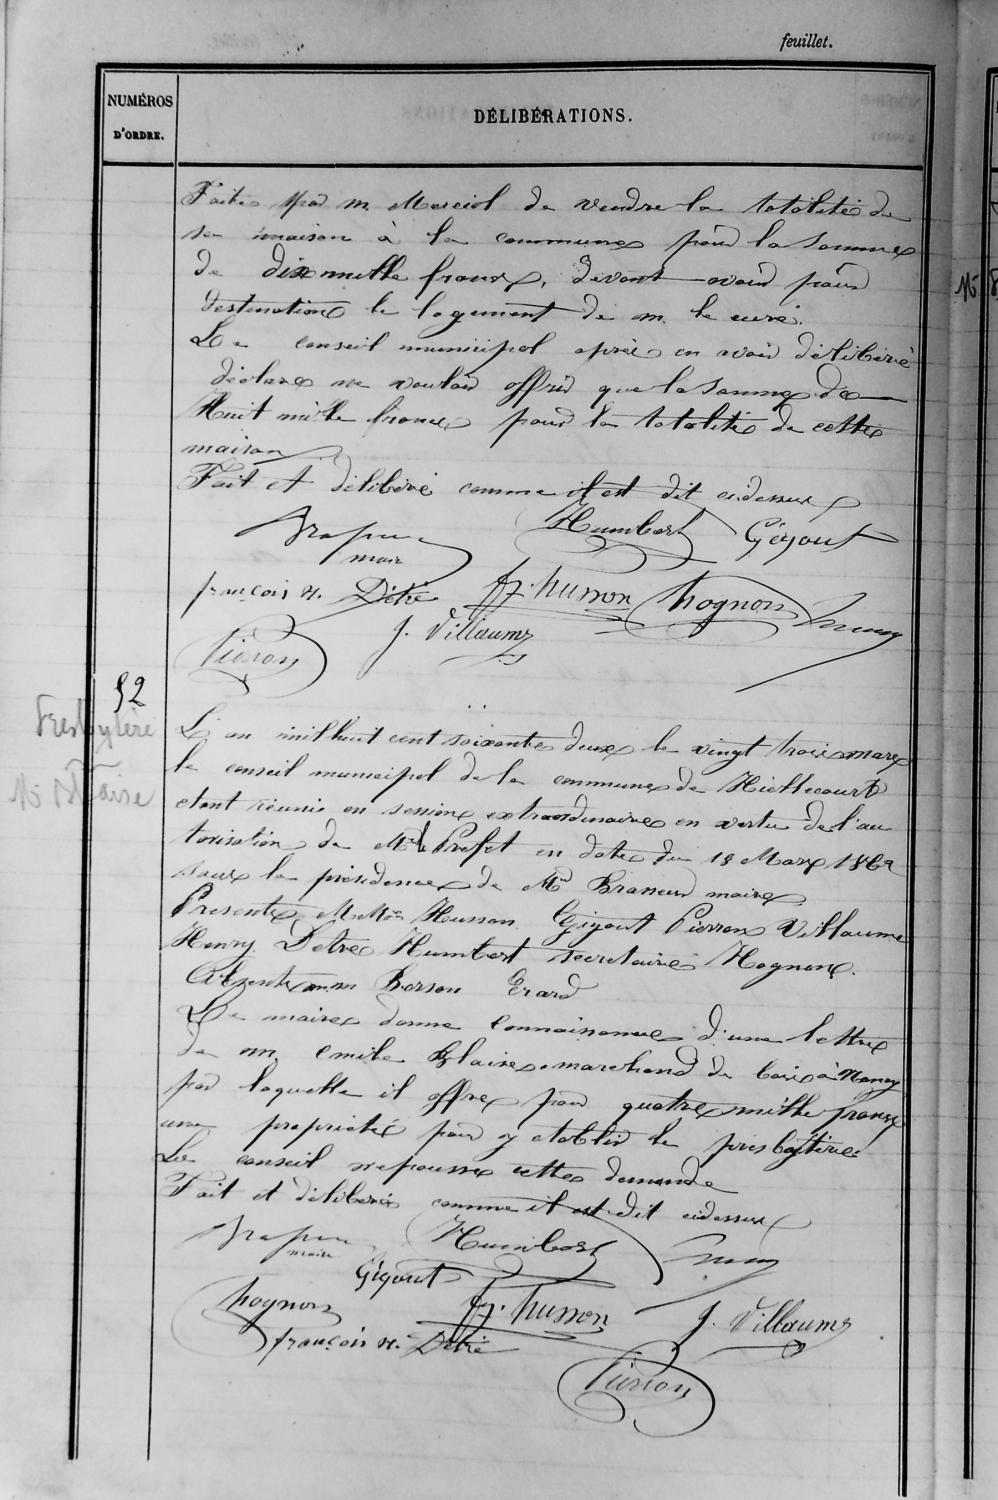 feuillet.
NUMÉROS
D'ORDRE.
DÉLIBÉRATIONS.
Faites par M Marciol de vendre la totalité de
sa maison à la commune pour la somme
de dix mille francs, devant avoir pour
destination le logement de m. le curé.
Le conseil municipal après en avoir délibéré
déclare ne vouloir offrir que la somme de
Huit mille francs pour la totalité de cette
maison
Fait et délibéré comme il est dit cidessus
Humbert Gégout
maire
françois N. Détré fz. husson hognon
J. Villaume
Pierson
52
Presbytère
L'an mil huit cent soixante deux le vingt trois mars
le conseil municipal de la commune de Hiellecourt
etant réunie en session extraordinaire en vertu de l'au
torisation de Mr le Préfet en date du 18 Mars 1862
sous la présidence de Mr maire
Presents MM Husson Gigout Pierron Villaume
Henry Detré Humbert secretaire Hognon.
Absents mm Berson Erard
Le maire donne connaissance d'une lettre
de m. emile Blaise marchand de bois à Nancy
par laquelle il offre pour quatre mille francs
une propriété pour y etablir le presbytère
Le conseil repousse cette demande
Fait et délibéré comme il est dit cidessus
maire
Humbert
Gigout
hognon fz. husson J. Villaume
françois N. Détré
Pierson